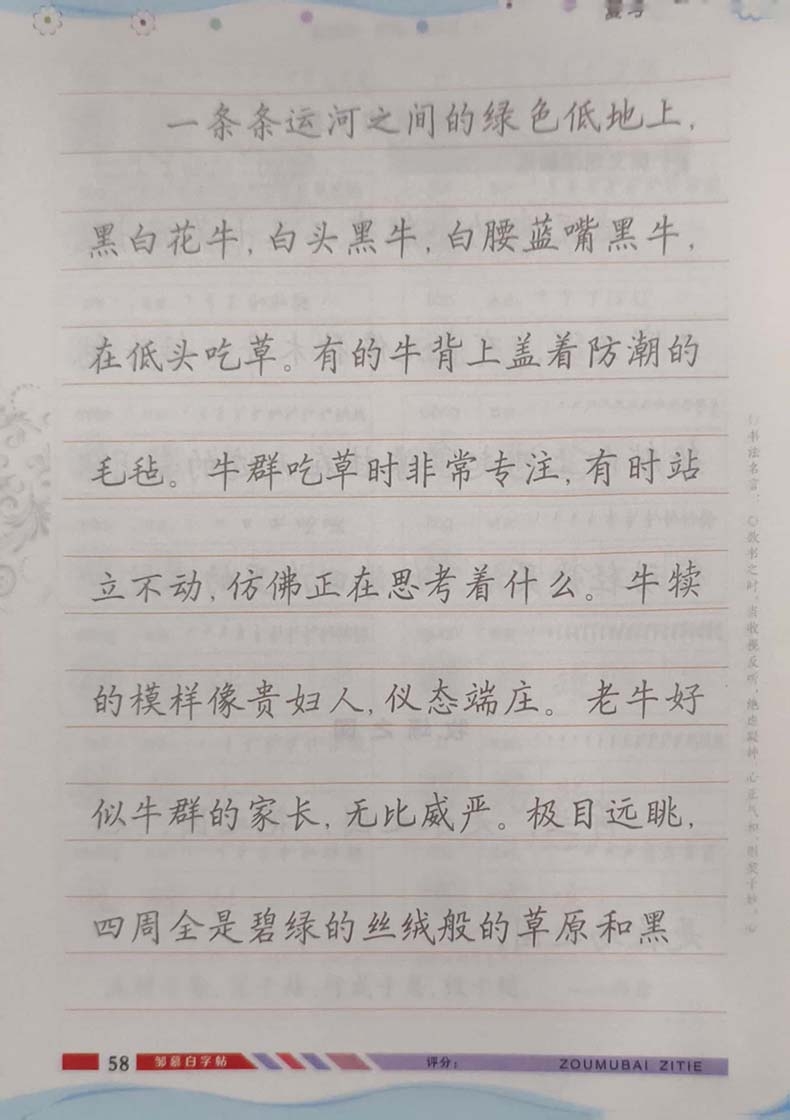 一条条运河之间的绿色低地上,
黑白花牛,白头黑牛,白腰蓝嘴黑牛,
在低头吃草。有的牛背上盖着防潮的
毛毡。牛群吃草时非常专注,有时站
立不动,仿佛正在思考着什么。牛犊
的模样像贵妇人,仪态端庄。老牛好
似牛群的家长,无比威严。极目远眺,
四周全是碧绿的丝绒般的草原和黑
书法名言:
欲书之时,当收视反听,绝虑凝神,心正气和,则契于妙。
58 邹慕白字帖 评分: ZOUMUBAI ZITIE